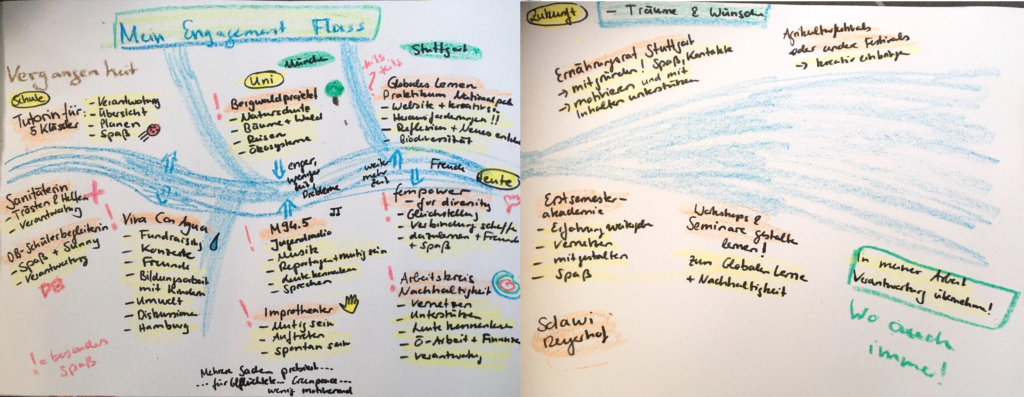 Mein Engagement Fluss
Vergangenheit
Schule
Tutorin für
5 Klässler
- Verantwortung
- Übersicht
- Planen
- Spaß
Uni
München
! Bergwaldprojekt
- Naturschutz
- Bäume + Wald
- Reisen
- Ökosysteme
Stuttgart
Globales Lernen
Praktikum Nationalpark
- Website + kreativ sein
- Herausforderungen !!
- Reflexion + Neues
- Biodiversität
enger,
weniger
Zeit
Probleme
weiter
mehr
Zeit
Freude
Heute
Sanitäterin
- Trösten & Helfen
- Verantwortung
DB-Schülerbegleiterin
- Spaß + Sunny
- Verantwortung
DB
! Viva Con Agua
- Fundraising
- Konzerte
- Freunde
- Bildungsarbeit
mit Kindern
- Umwelt
- Diskussionen
- Hamburg
! M94.5
- Jugendradio
- Musik
- Reportagen + mutig sein
- Leute kennenlernen
- Sprechen
! Improtheater
- Mutig sein
- Auftreten
- spontan sein
! fempower
- for diversity
- Gleichstellung
- Verbindung schaffen
+ Freunde
+ Spaß
! Arbeitskreis
Nachhaltigkeit
- Vernetzen
- Unterstützen
- Leute kennenlernen
- Ö-Arbeit + Finanzen
- Verantwortung
! = besonders
Spaß
Mehrere Sachen probiert...
... für Geflüchtete... Greenpeace...
wenig motivierend
Zukunft
- Träume & Wünsche
Ernährungsrat Stuttgart
→ mitgründen! Spaß, Kontakte
→ motivieren und mit
Inhalten unterstützen
Agrikulturfestivals
oder andere Festivals
→ kreativ einbringen
Erstsemester-
akademie
- Erfahrung weitergeben
- Vernetzen
- mitgestalten
- Spaß
Workshops &
Seminare gestalten
lernen!
zum Globalen Lernen
+ Nachhaltigkeit
Solawi
Reyerhof
In meiner Arbeit
Verantwortung übernehmen!
Wo auch
immer!